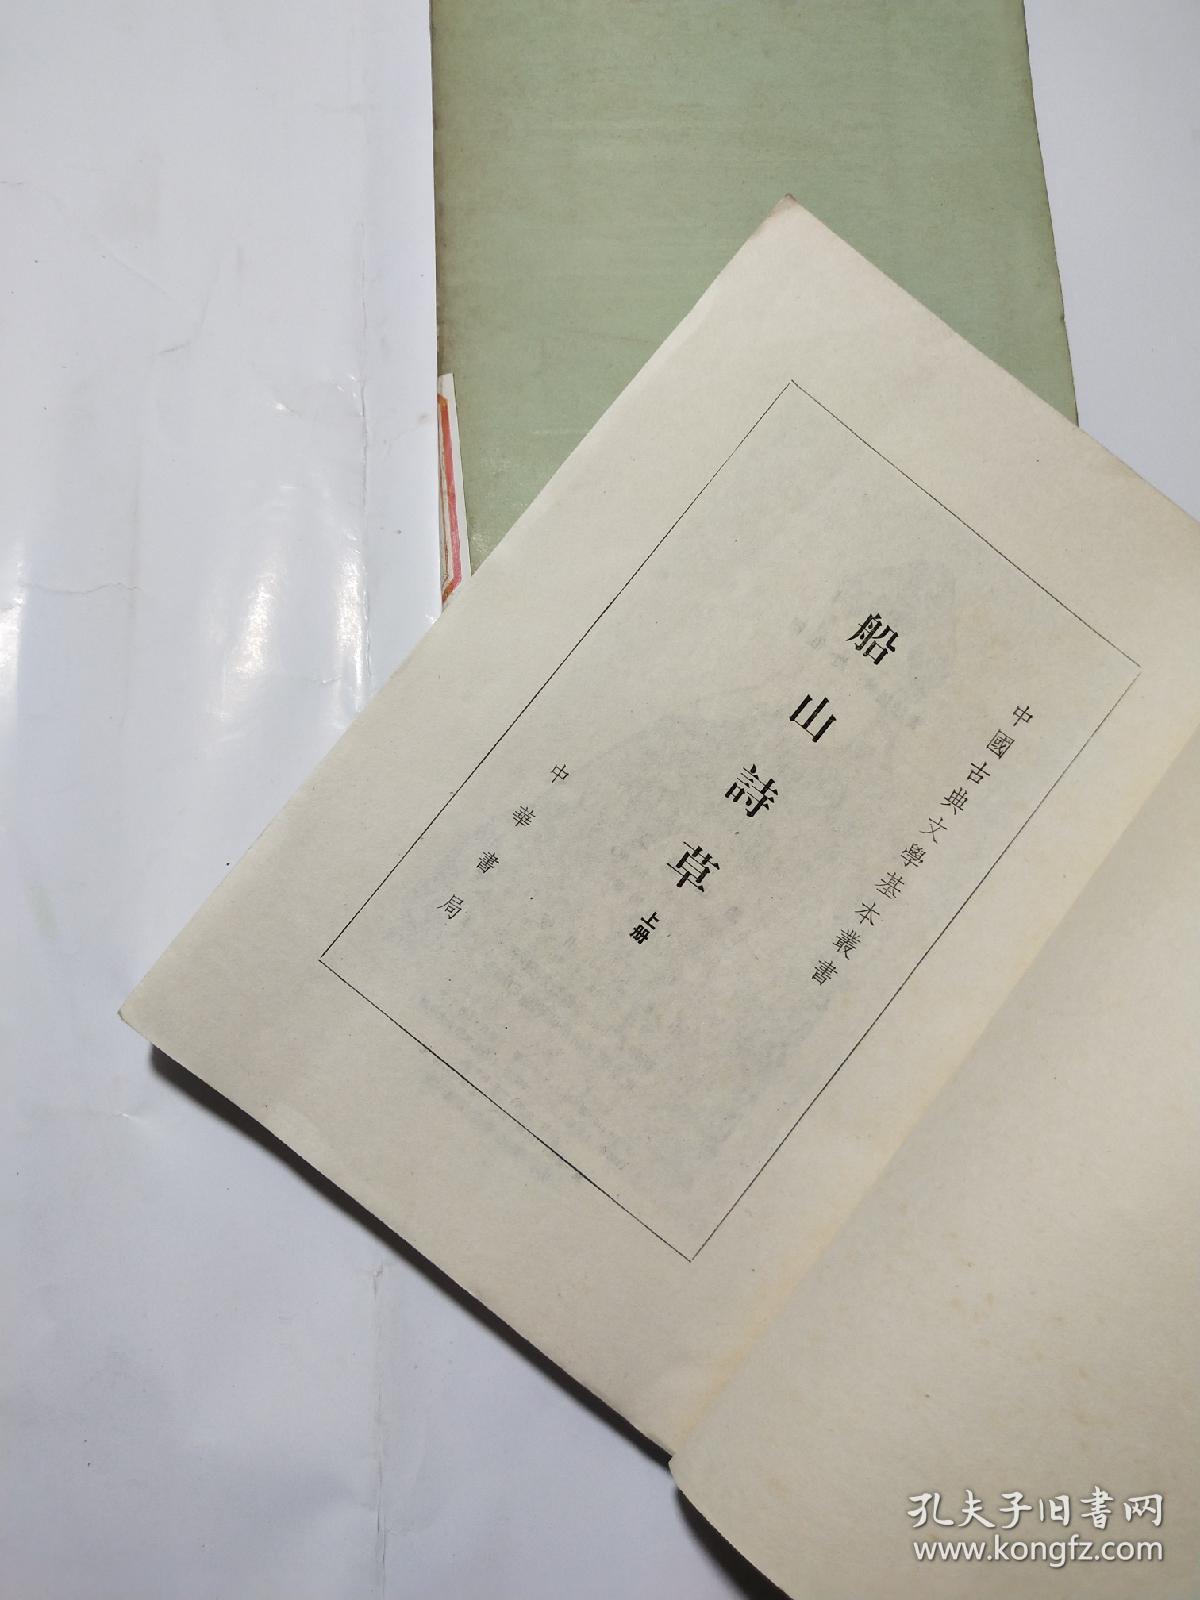 中國古典文學基本叢書
船山詩草 上册
中華書局
孔夫子旧书网
www.kongfz.com